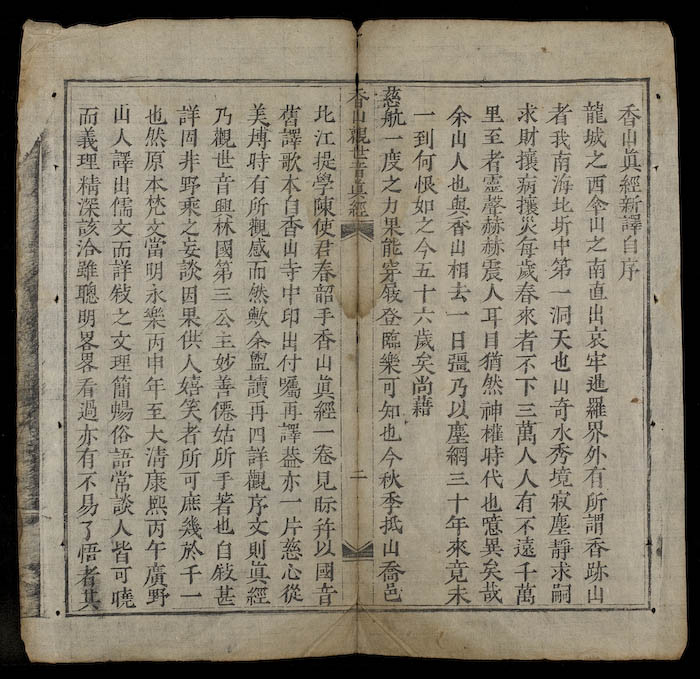 香山眞經新譯自序
龍城之西傘山之南直出哀牢暹羅界外有所謂香跡山
者我南海北圻中第一洞天也山奇水秀境寂塵靜求嗣
求財攘病攘災每歲春來者不下三萬人人有不遠千萬
里至者靈聲赫赫震人耳目猶然神權時代也噫異矣哉
余山人也與香山相去一日彊乃以塵網三十年來竟未
一到何恨如之今五十六歲矣尚藉
慈航一度之力果能穿屐登臨樂可知也今秋季抵山喬邑
香山觀世音眞經
二
北江提學陳使君春韶手香山眞經一卷見眎幷以國音
舊譯歌本自香山寺中印出付囑再譯葢亦一片慈心從
美塼時有所觀感而然歟余盥讀再四詳觀序文則眞經
乃觀世音興林國第三公主妙善僊姑所手著也自敍甚
詳固非野乘之妄談因果供人嬉笑者所可庶幾於千一
也然原本梵文當明永樂丙申年至大清康熙丙午廣野
山人譯出儒文而詳敍之文理簡暢俗語常談人皆可曉
而義理精深該洽雖聰明畧畧看過亦有不易了悟者其